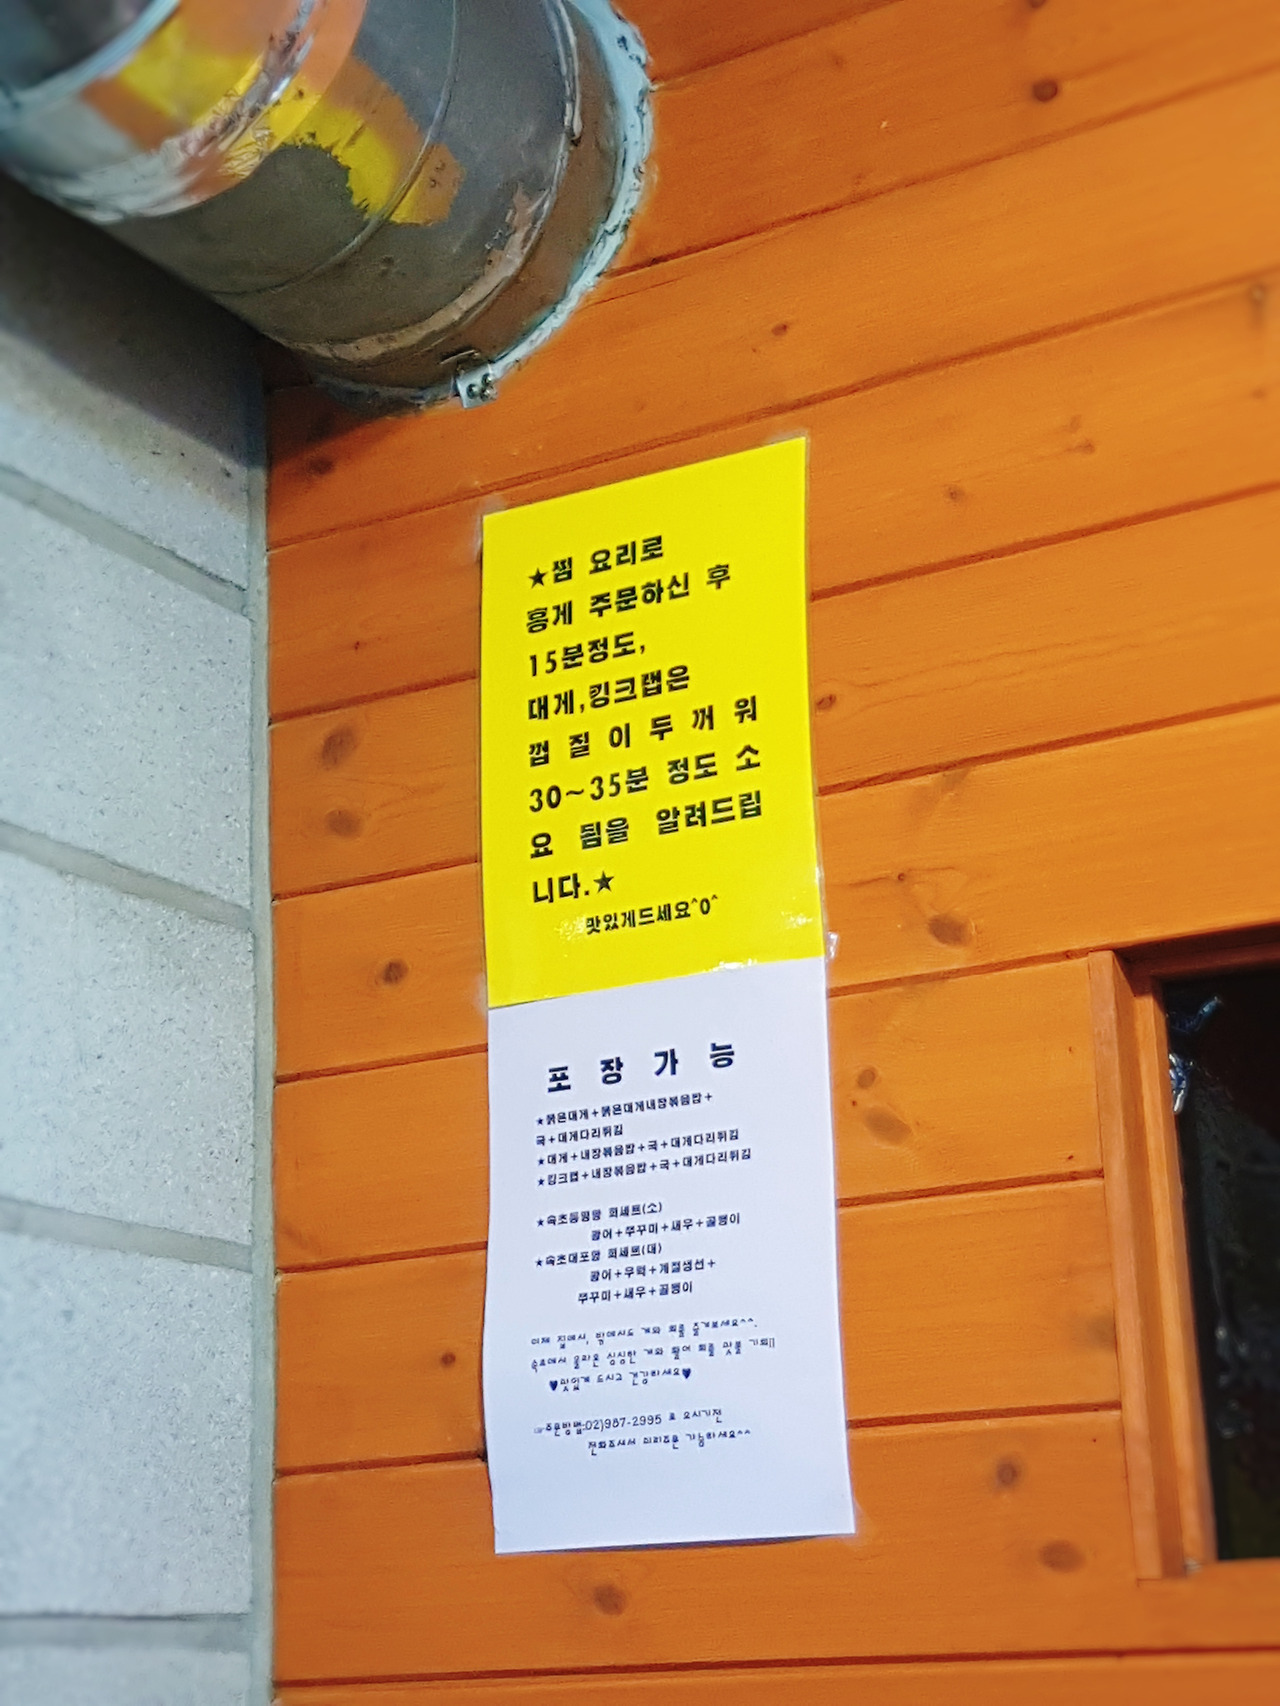 ★찜 요리로
홍게 주문하신 후
15분정도,
대게,킹크랩은
껍 질 이 두 꺼 워
30~35분 정도 소
요 됨을 알려드립
니다.★
맛있게드세요^0^
포 장 가 능
★붉은대게+붉은대게내장볶음밥+
국+대게다리튀김
★대게+내장볶음밥+국+대게다리튀김
★킹크랩+내장볶음밥+국+대게다리튀김
★속초동명항 회세트(소)
광어+쭈꾸미+새우+골뱅이
★속초대포항 회세트(대)
광어+우럭+계절생선+
쭈꾸미+새우+골뱅이
이제 집에서, 밖에서도 게와 회를 즐겨보세요^^.
속초에서 올라온 싱싱한 게와 활어 회를 맛볼 기회!!
♥맛있게 드시고 건강하세요♥
☞주문방법:02)987-2995 로 오시기전
전화주셔서 미리주문 가능하세요^^